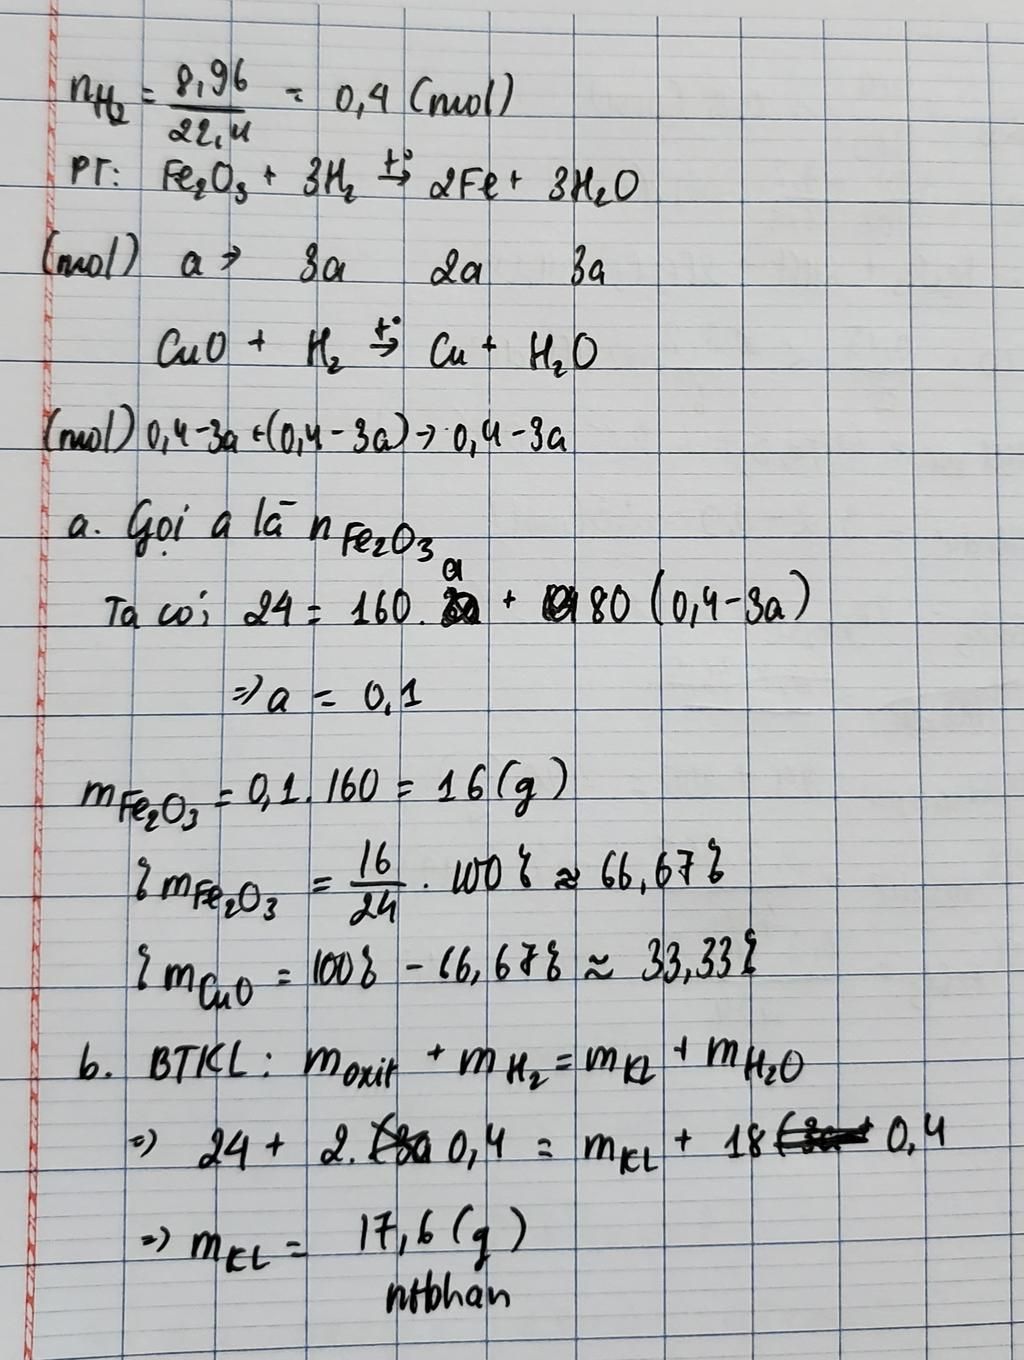 nH₂ = 8,96/22,4 = 0,4 (mol)
PT: Fe₂O₃ + 3H₂ t°→ 2Fe + 3H₂O
(mol) a → 3a 2a 3a
CuO + H₂ t°→ Cu + H₂O
(mol) 0,4-3a ←(0,4-3a) → 0,4-3a
a. Gọi a là n Fe₂O₃
Ta có; 24 = 160. a + 80 (0,4-3a)
=> a = 0,1
m Fe₂O₃ = 0,1. 160 = 16 (g)
% m Fe₂O₃ = 16/24 . 100% ≈ 66,67%
% m CuO = 100% - 66,67% ≈ 33,33%
b. BTKL: m oxit + m H₂ = m KL + m H₂O
=> 24 + 2. 0,4 = m KL + 18 0,4
=> m KL = 17,6 (g)
ntbhan